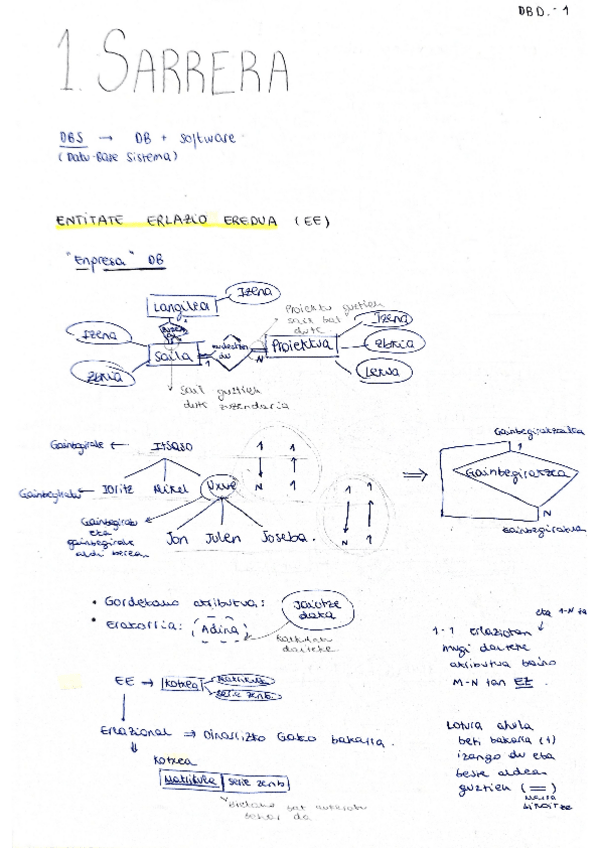 DBD.-1
1. SARRERA
DBS → DB + software
(Datu-Base Sistema)
ENTITATE ERLAZIO EREDUA (EE)
"Enpresa" DB
Langilea
Izena
Proiektu guztiek
sail bat
dute
Izena
Saila
Proiektua
Izena
Zbkia
Zbkia
Lekua
1
N
Sail guztiek
dute zuzendaria
Gainbegirale ← Itsaso
Gainbegiratu ← Joritz Mikel Uxue
Gainbegiratu
eta
gainbegirale
aldi berean
Jon Julen Joseba.
1 1
N 1
1 1
N 1
⇒
Gainbegiratzailea
1
Gainbegiratzea
N
Gainbegiratua
• Gordetako atributua: Jaiotze data
• Eratorria: Adina
Kalkulatu
daiteke
eta 1-N ta
1-1 erlazioetan
mugi daiteke
atributua baino
M-N tan EZ.
EE → Kotxea
Matrikula
Serie zenb.
Erlazional ⇒ Oinarrizko Gako bakarra.
Kotxea
Matrikula | Serie zenb
bat aukeratu
behar da
Lotura ahula
beti bakarra (1)
izango du eta
beste aldean
guztiek (=)